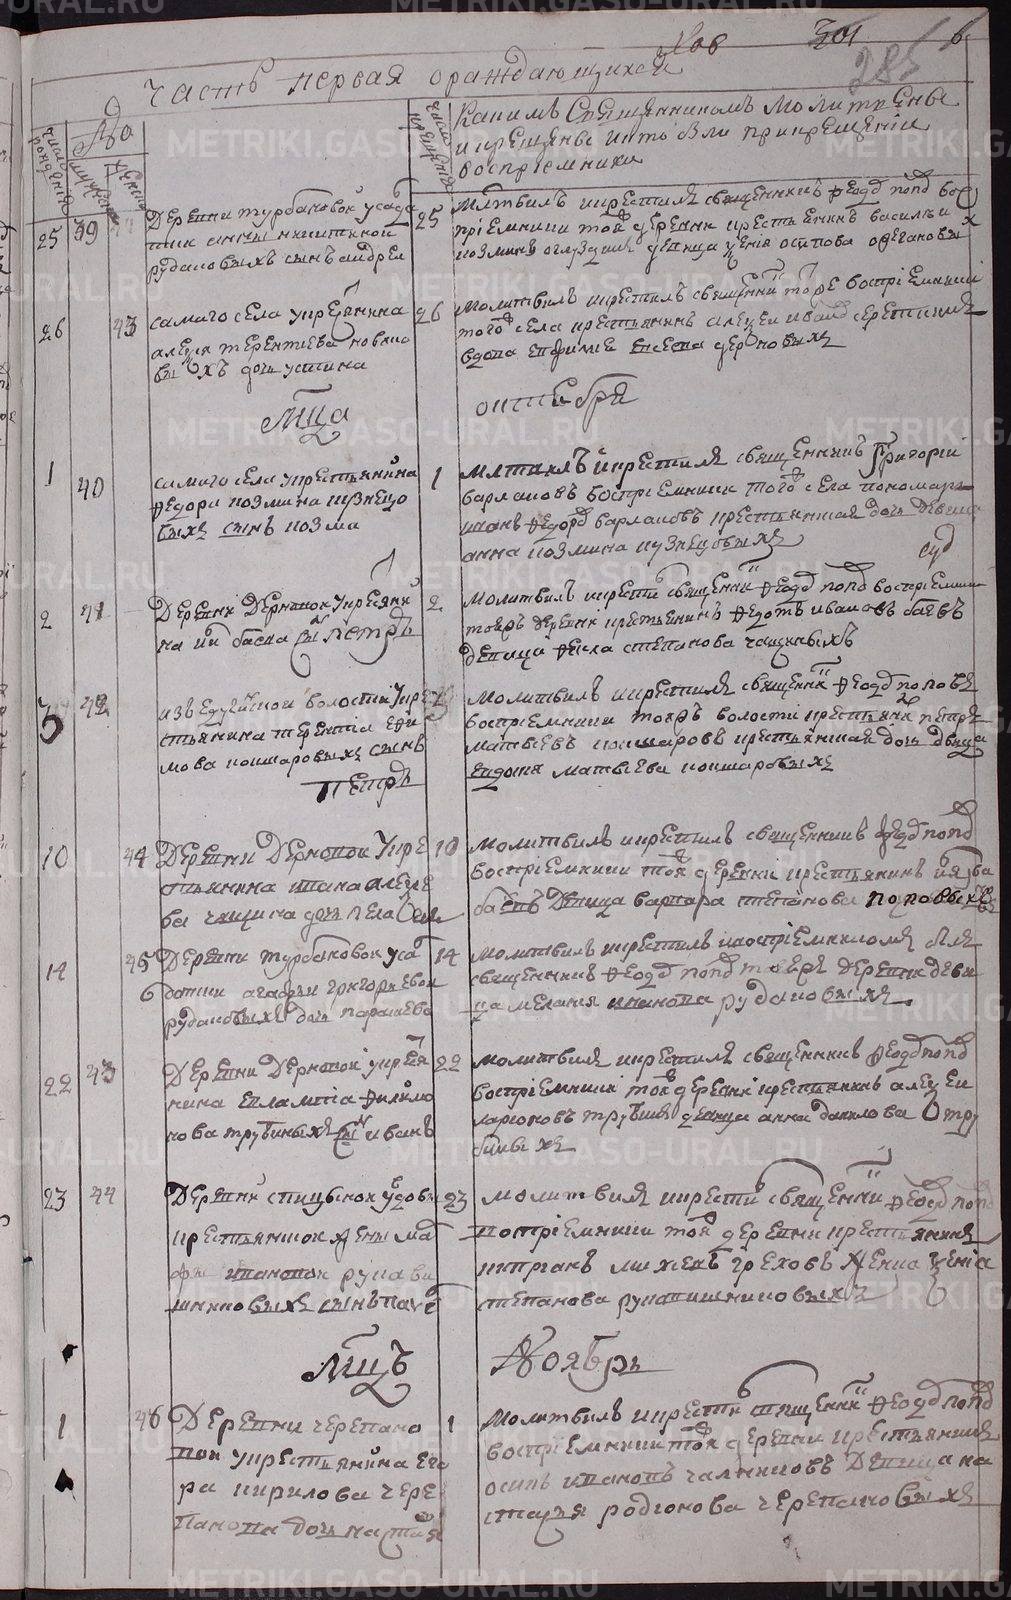 301
285
6
Часть первая о раждающихся
число рождения
мужеска
женска
число крещения
Каким священником молитвены
и крещены и кто были при крещении
восприемники
25 39
Деревни турбановои у солда
тки анны никитинои
рудаковыхъ сынъ андреи
25
Млтвилъ и крестилъ священникъ феодр поповъ вос
приемники тои деревни крестьянинъ василеи
козминъ девица ксения осипова
26 43
самаго села у крестьянина
алексея терентиева новико
выхъ дочь устина
26
Молитвилъ и крестилъ священникъ тоже восприемники
того села крестьянинъ алексеи иванов
вдова
Мца октября
1 40
самаго села у крестьянина
федора козмина кузнецо
выхъ сынъ козма
1
млтвилъ и крестилъ священникъ Григории
варлаковъ восприемники того села пономарь
иванъ федоров варлаковъ крестьянская дочь девица
анна козмина кузнецовыхъ
2 41
Деревни Дерновои у крестьяни
на баева сынъ петръ
2
молитвилъ и крести священник феодр попов восприемники
тоеже деревни крестьянинъ федотъ ивановъ баевъ
девица фекла степанова чащиныхъ
3 42
изъ волости у кре
стьянина терентиа ефи
мова кошкаровыхъ сынъ
петръ
3
молитвилъ и крестилъ священник феодр поповъ
восприемники тоежъ волости крестьянин петръ
матвеевъ кошкаровъ крестьянская дочь двица
евдокия матвеева кошкаровыхъ
10 44
Деревни Дерновои у кре
стьянина ивана алексе
ева чащина дочь пелагея
10
молитвилъ и крестилъ священникъ феодр попов
восприемники тои деревни крестьянинъ
баевъ девица варвара степанова поповыхъ
14 45
Деревни турбановои у сол
датки агафьи григорьевои
рудаковыхъ дочь парасковья
14
молитвилъ и крестилъ и восприемникомъ былъ
священникъ феодр попов тоеже деревни деви
ца мелания иванова рудаковыхъ
22 43
Деревни Дерновои у крестья
нина евлампиа филимо
нова трубиныхъ сынъ иванъ
22
молитвилъ и крестилъ священникъ феодр попов
восприемники тои деревни крестьянинъ алексеи
ларионовъ трубинъ девица анна данилова тру
биныхъ
23 44
Деревни спицынои у вдовы
крестьянскои жены ма
рфы ивановои рукави
шниковыхъ сынъ павелъ
23
молитвилъ и крестил священник феодр попов
восприемники тои деревни крестьянинъ
киприанъ михеевъ греховъ девица ксениа
степанова рукавишниковыхъ
Мцъ Ноябрь
1 46
Деревни черепано
вои у крестьянина его
ра кирилова чере
панова дочь настасья
1
молитвилъ и крестил священник феодр попов
восприемники тои деревни крестьянинъ
осипъ ивановъ чалкиновъ девица на
стасья родионова черепановыхъ
METRIKI.GASO-URAL.RU